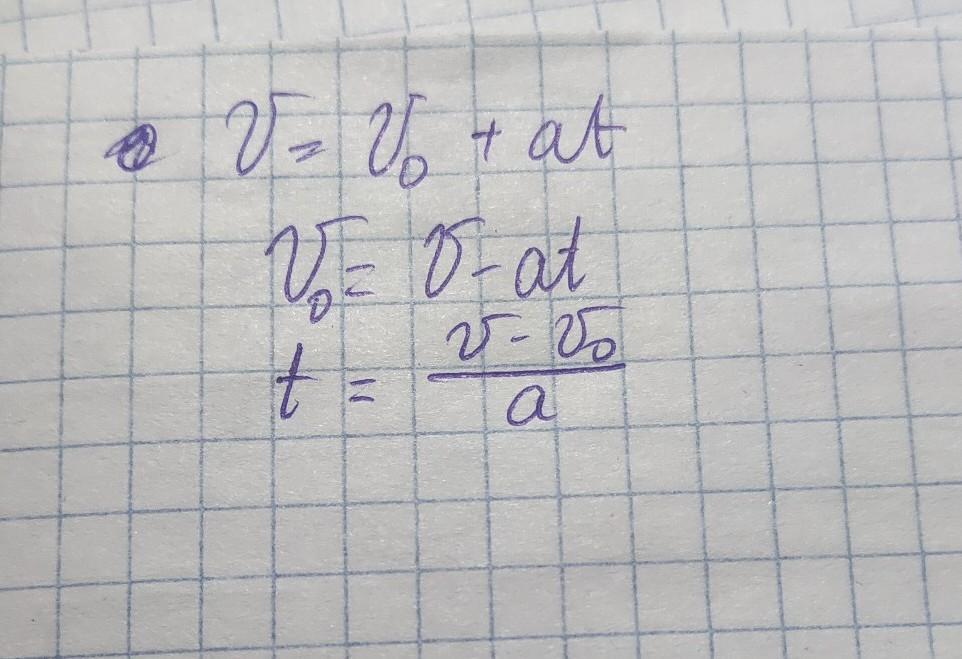 v = v₀ + at
v₀ = v - at
t = (v - v₀)/a